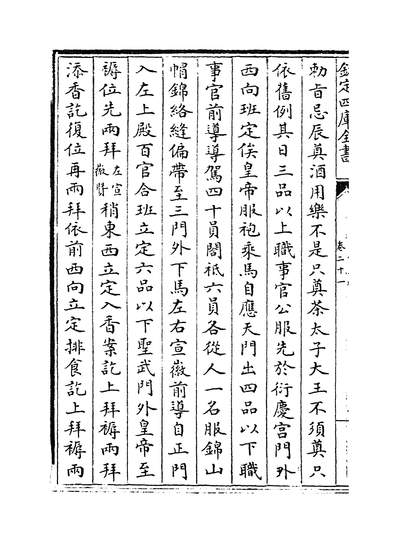 欽定四庫全書
卷二十一
勅旨忌辰奠酒用樂不是只奠茶太子大王不須奠只
依舊例其日三品以上職事官公服先於衍慶宮門外
西向班定俟皇帝服袍乘馬自應天門出四品以下職
事官前導導駕四十員閤祗六員各從人一名服錦山
帽錦絡縫偏帶至三門外下馬左右宣徽前導自正門
入左上殿百官合班立定六品以下聖武門外皇帝至
褥位先兩拜左宣徽贊稍東西立定入香案訖上拜褥兩拜
添香訖復位再兩拜依前西向立定排食訖上拜褥兩